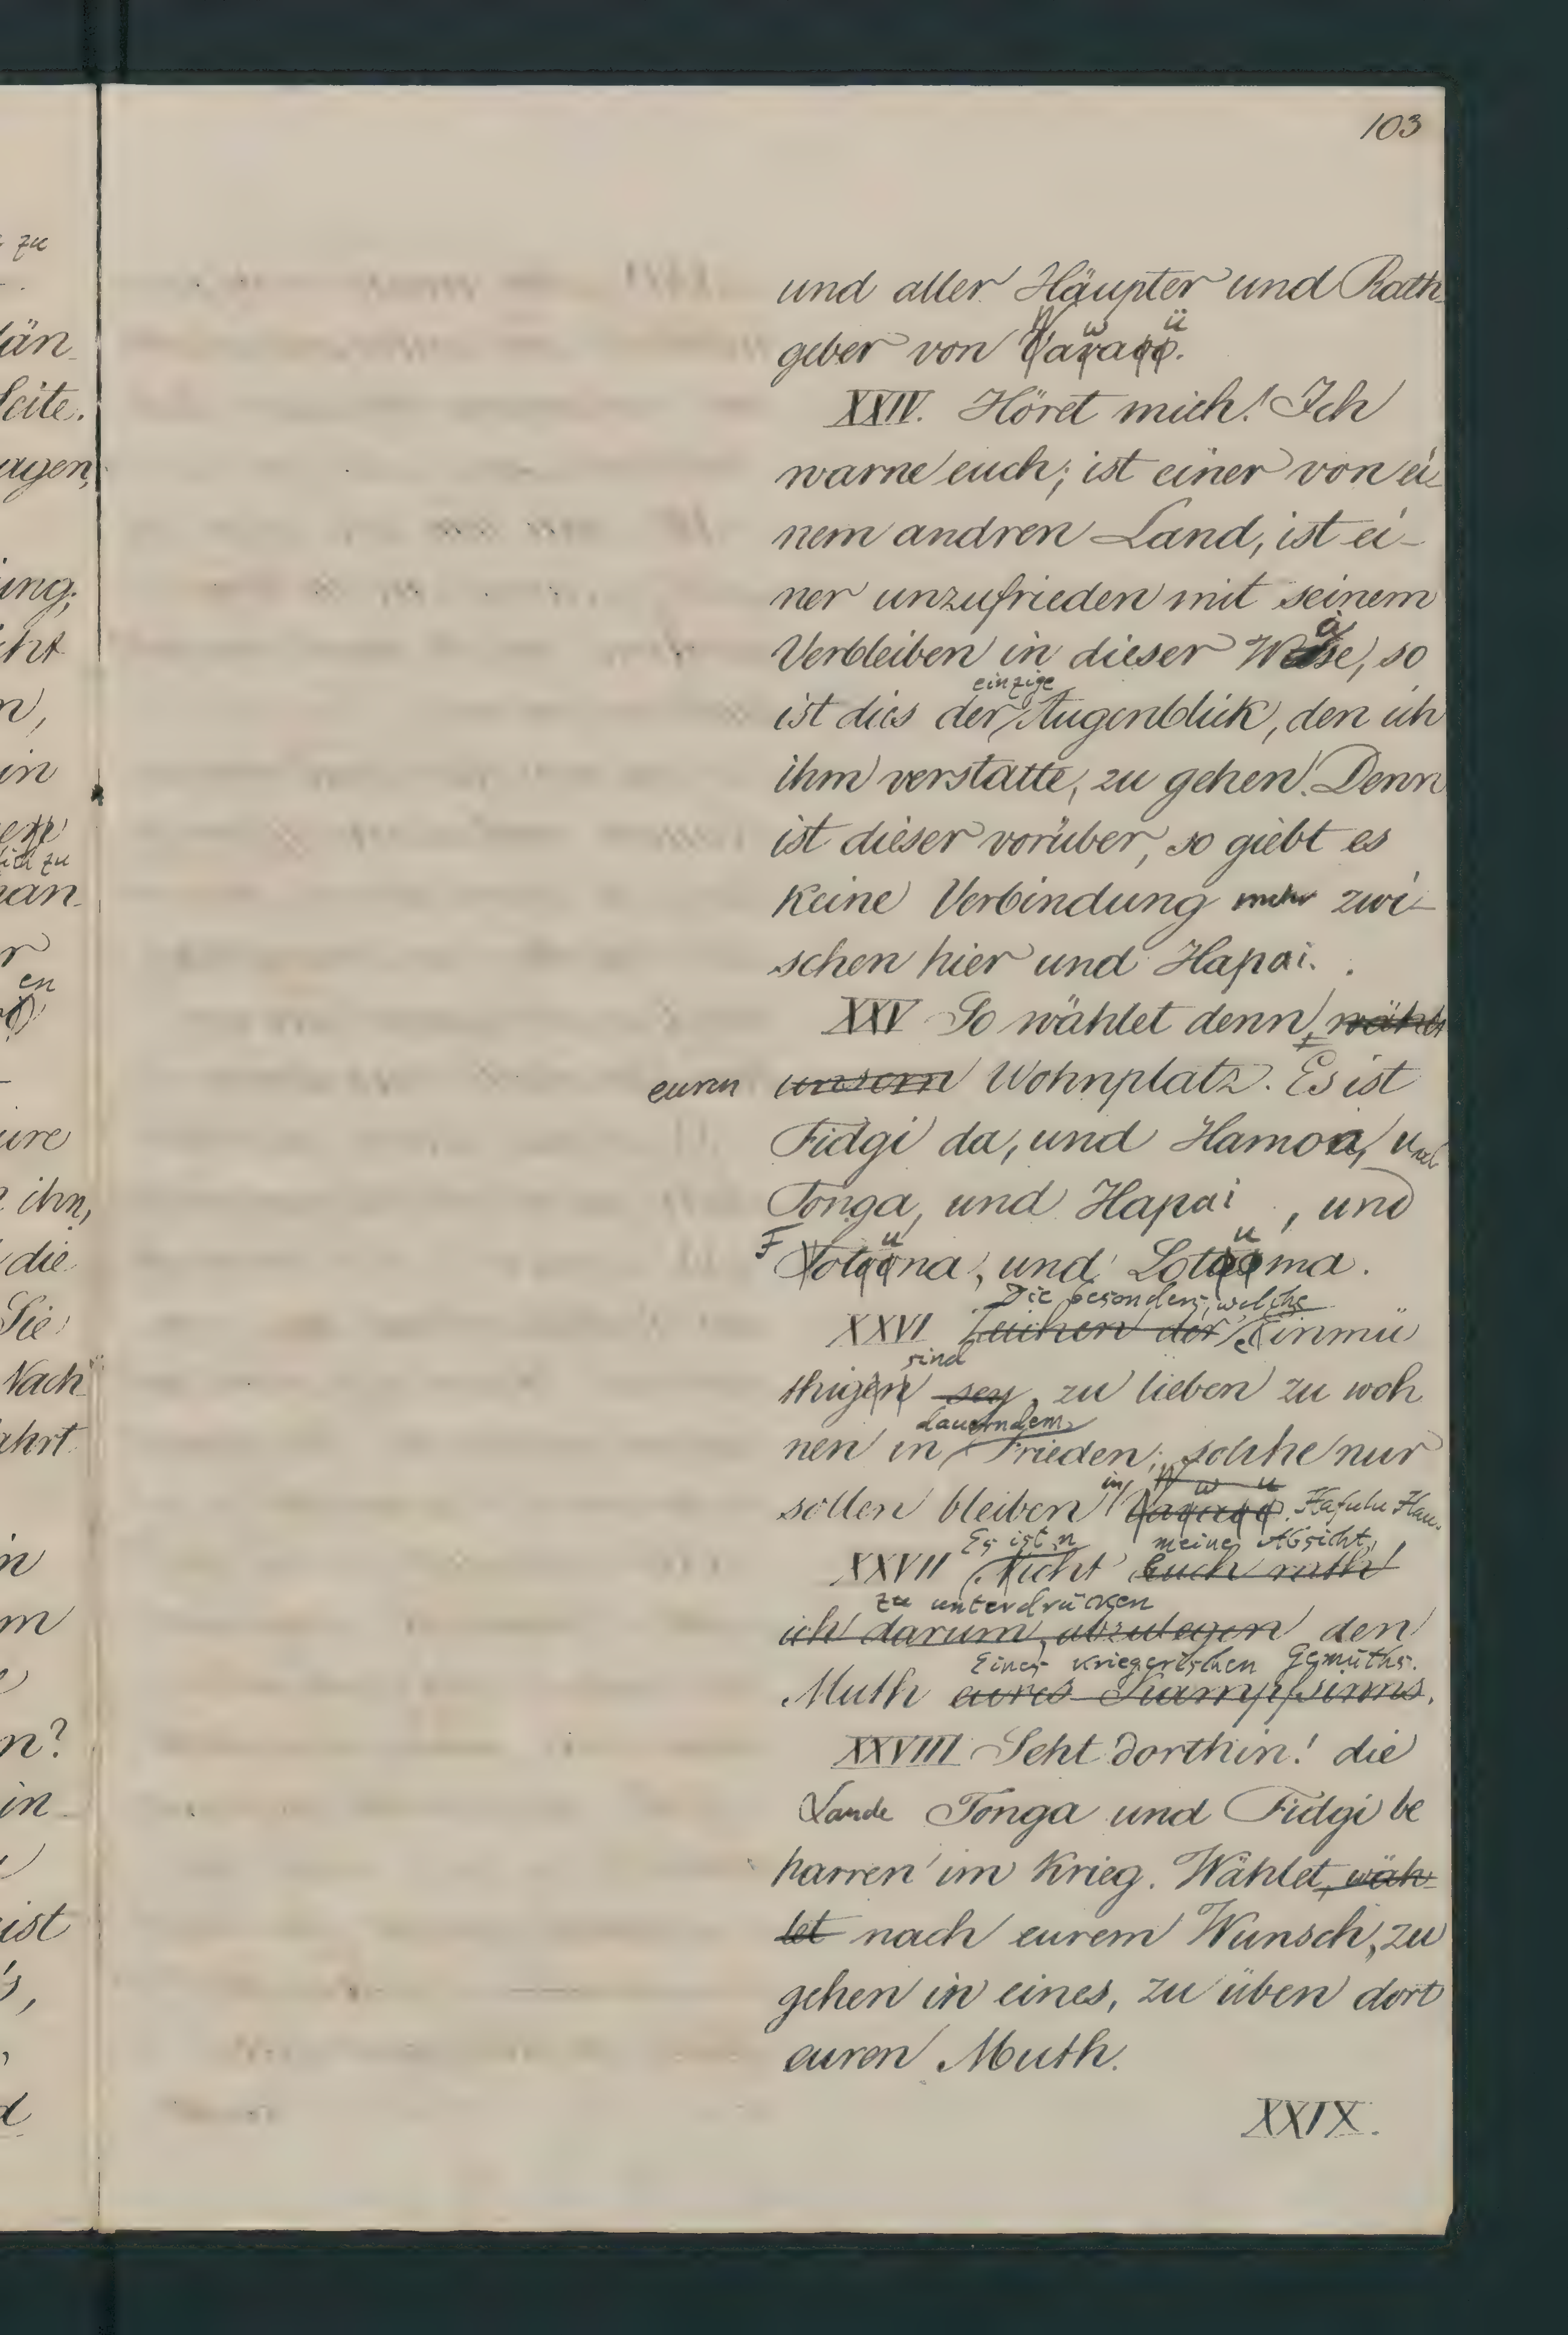 103
und aller Häupter und Rath
W w ü
geber von Vavaoo.
XXIV. Höret mich! Ich
warne euch; ist einer von ei-
nem andren Land, ist ei-
ner unzufrieden mit seinem
Verbleiben in dieser Weise, so
einzige
ist dies der Augenblick, den ich
ihm verstatte, zu gehen! Denn
ist dieser vorüber, so giebt es
keine Verbindung mehr zwi-
schen hier und Hapai.
XXV So wählet denn, wählt
euren unsern Wohnplatz. Es ist
Fidgi da, und Hamoa, und
Tonga, und Hapai, und
F u u
Fotoona, und Lotooma.
Die besonders, welche
XXVI Zeichen der Einmü
sind
thigen sey, zu lieben zu woh
dauerndem
nen in Frieden; solche nur
in W w u
sollen bleiben Vavaoo. Hafulu Hau.
Es ist n meine Absicht,
XXVII Nicht Euch rath!
zu unterdrücken
ich darum, abzulegen den
Eines kriegerischen Gemüths.
Muth eures Kampfsinns.
XXVIII Seht dorthin! die
Lande Tonga und Fidgi be
harren im Krieg. Wählet, wäh-
let nach eurem Wunsch, zu
gehen in eines, zu üben dort
euren Muth.
XXIX.